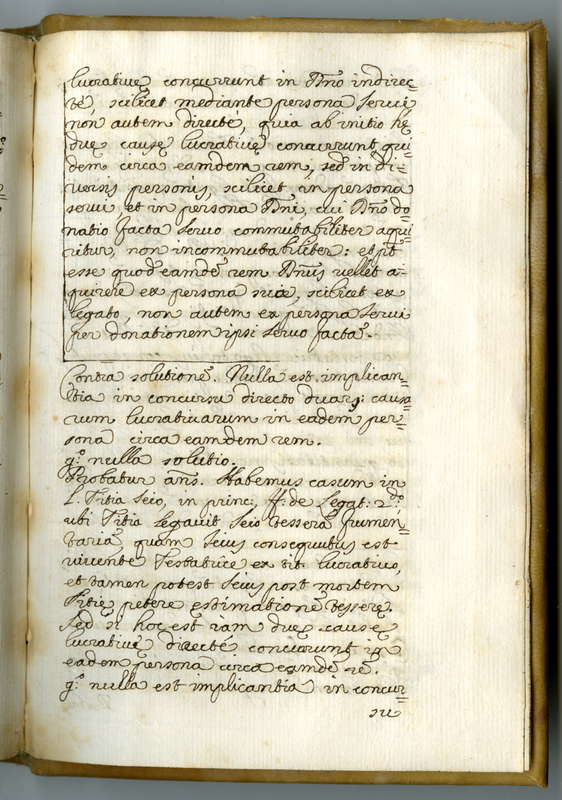 lucrativę concurrunt in Dn̄o indirec=
tè, scilicet mediante persona servi,
non autem directè, quia ab initio hę
duę causę lucrativę concurrunt qui
dem circa eamdem rem, sed in di=
versis personis, scilicet in persona
servi, et in persona Dn̄i, cui Dn̄o do=
natio facta servo commutabiliter aqui
ritur, non incommutabiliter: et
esse quod eamdē rem Dn̄us vellet a=
quirere ex persona sua, scilicet ex
legato, non autem ex persona servi
per donationem ipsi servo factā.
Contra solutionē. Nulla est implican=
tia in concursu directo duarȝ causa
rum lucrativarum in eadem per=
sona circa eamdem rem.
gͦ. nulla solutio.
Probatur ans. Habemus casum in
l. Titia Seio, in princ. ff. de Legat. 2.do
ubi Titia legavit Seio tesserā frumen=
tariā quam Seius consequutus est
vivente Testatrice ex tit. lucrativo,
et tamen potest Seius post mortem
Titię petere estimationē tesserę.
Sed si hoc est iam duę causę
lucrativę directè concurrunt in
eadem persona circa eamdē rē.
gͦ. nulla est implicantia in concur=
su